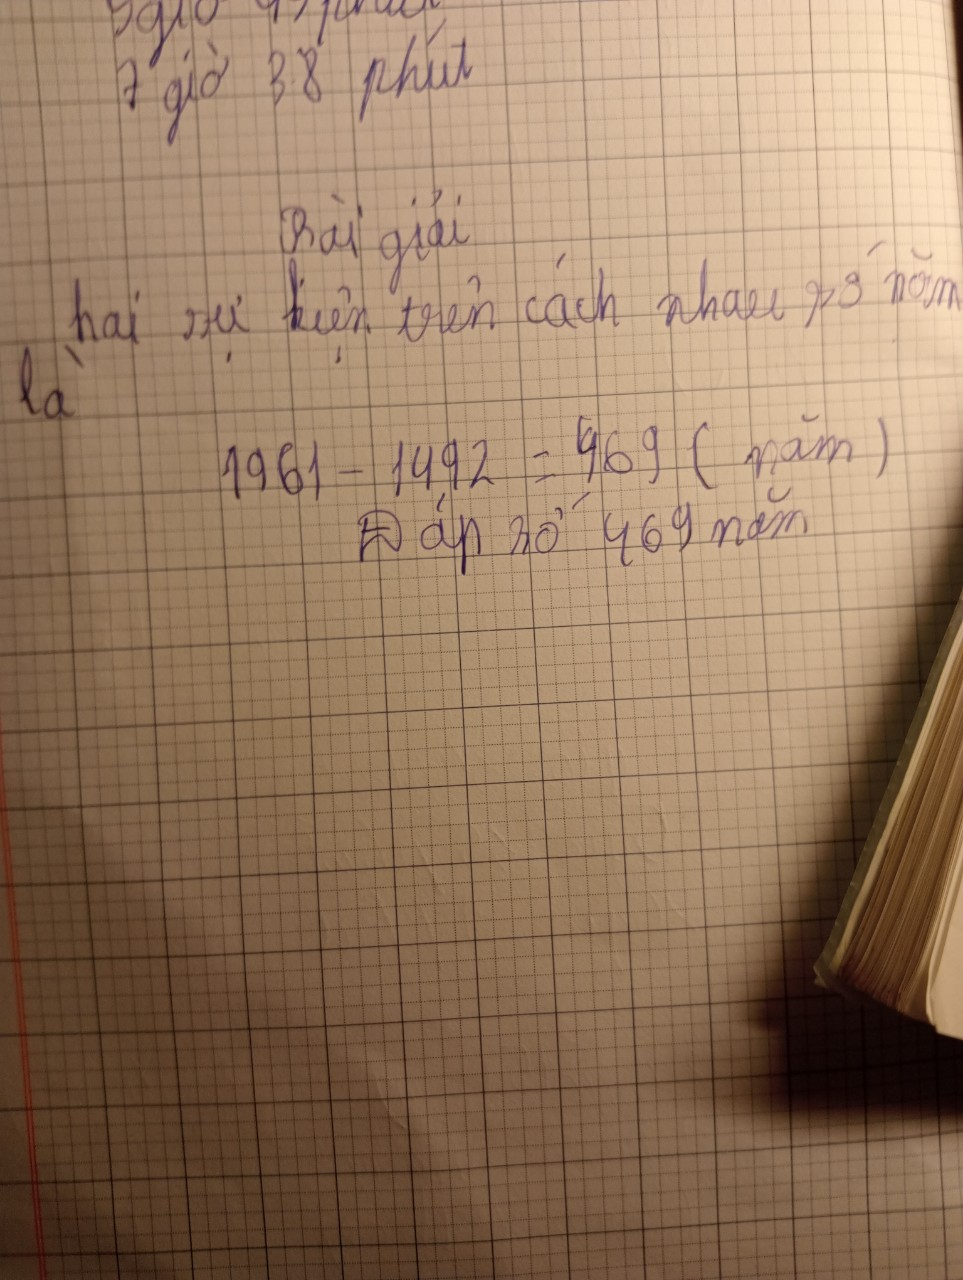 giờ
7 giờ 38 phút
Bài giải
hai sự kiện trên cách nhau số năm
là
1961 - 1492 = 469 ( năm )
Đáp số 469 năm